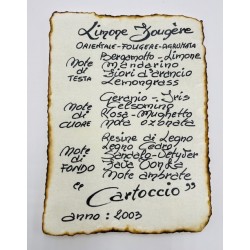 Limone Fougère
ORIENTALE-FOUGERE-AGRUMATA
Note di TESTA
Bergamotto - Limone
Mandarino
Fiori d'arancio
Lemongrass
Note di CUORE
Geranio - Iris
Gelsomino
Rosa - Mughetto
Nota ozonata
Note di FONDO
Resine di Legno
Legno Cedro
Sandalo - Vetyver
Fava Tonka
Note ambrate
"Cartoccio"
anno : 2003